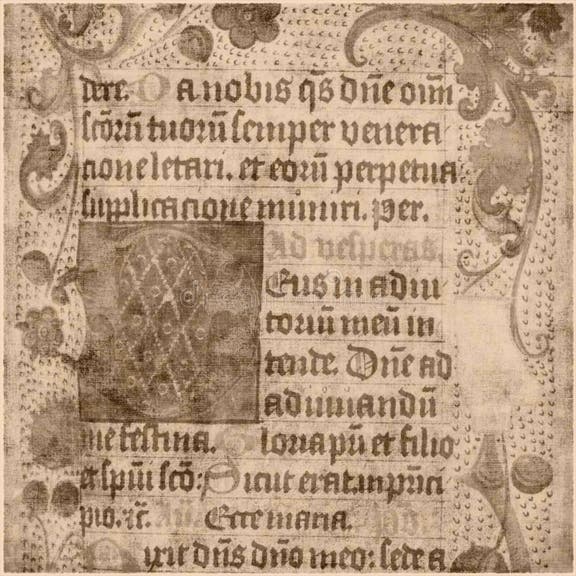 dere. Da nobis q̄s dn̄e oīm
sc̄orū tuorū semper venera
tione letari. et eorū perpetua
supplicatione muniri. per.
Ad vesperas.
Eus in adiu
toriū meū in
tende. Dn̄e ad
adiuuandū
me festina. Gloria pr̄i et filio
et spūi sc̄o: Sicut erat in prīci
pio. ⁊c̄. Añ. Ecce maria. Ps.
ixit dn̄s dn̄o meo: sede a